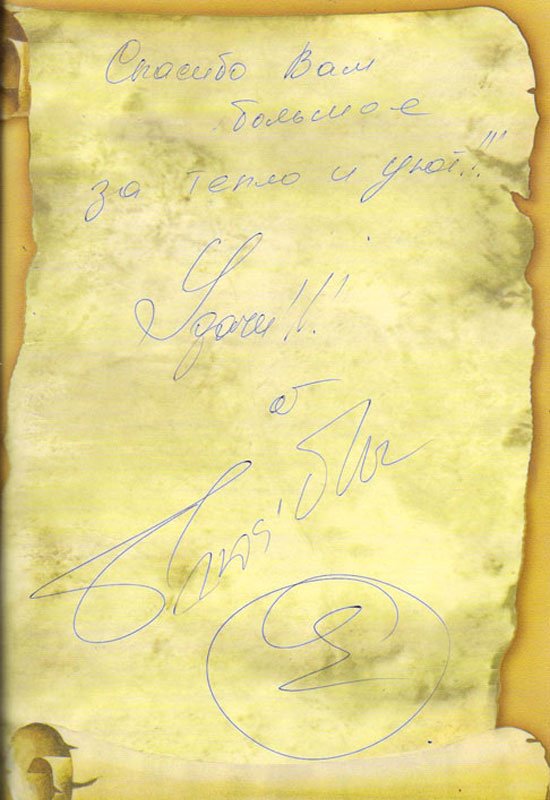 Спасибо Вам
большое
за тепло и уют!!!
Удачи!!!
от